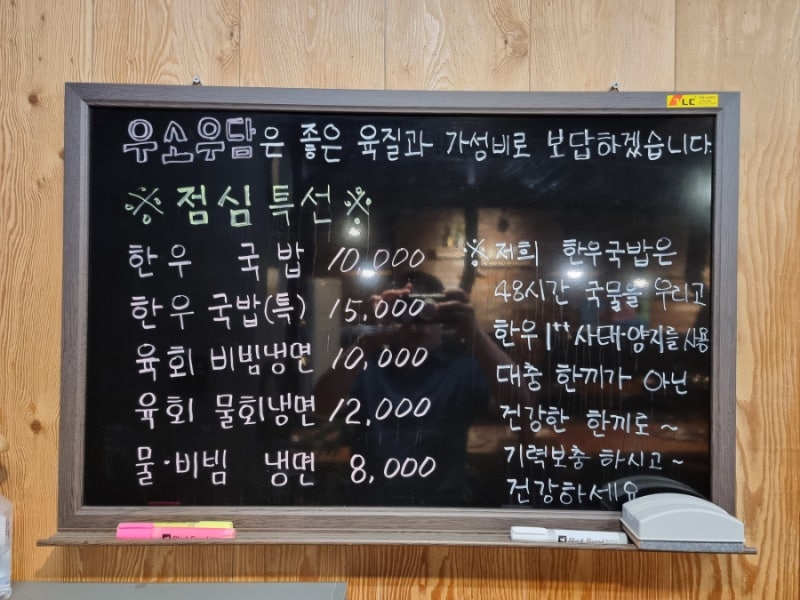 우소우담은 좋은 육질과 가성비로 보답하겠습니다
※점심특선※
한우 국밥 10,000
한우 국밥(특) 15,000
육회 비빔냉면 10,000
육회 물회냉면 12,000
물·비빔 냉면 8,000
※저희 한우국밥은
48시간 국물을 우리고
한우 1++ 사태·양지를 사용
대충 한끼가 아닌
건강한 한끼로~
기력보충 하시고~
건강하세요
LC